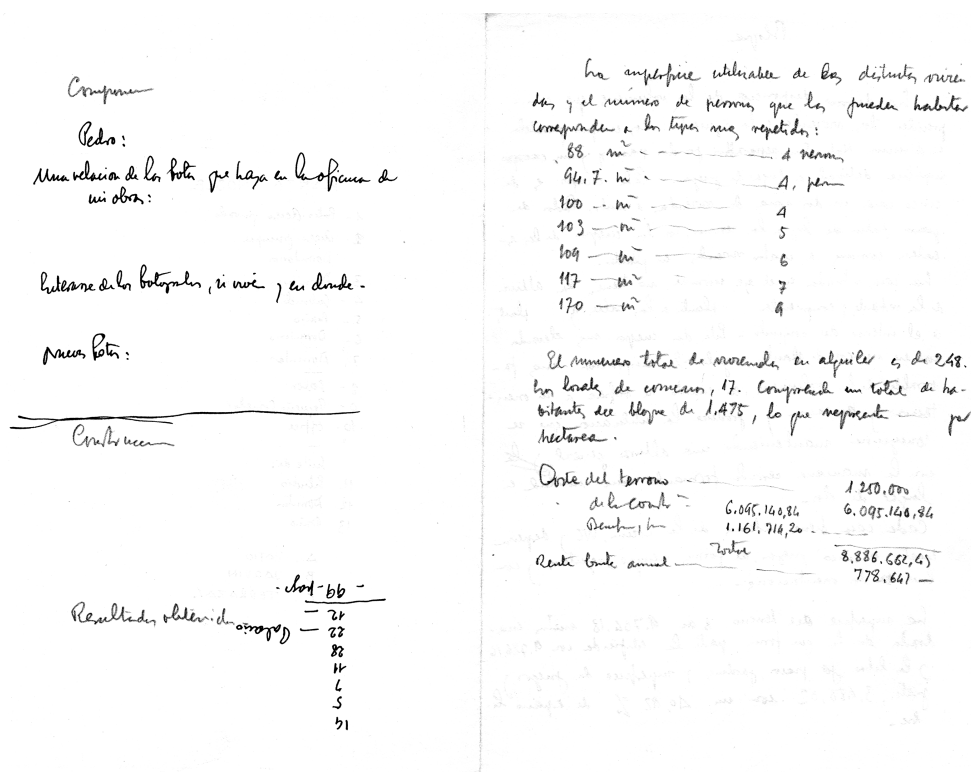 Componen
Pedro:
Una relacion de los botes que haya en la oficina de
mi obra:
Enterarse de los , si vive y en donde -
nuevos botes:
Construccion
Resultados obtenidos
14
5
7
11
28
Palacio 22 —
12 —
99 -
La superficie utilizable de las distintas vivien
das y el número de personas que las pueden habitar
corresponden a los tipos mas repetidos:
88 m² — 4 person
94,7. m² — 4, person
100 — m² 4
103 — m² 5
109 — m² 6
117 — m² 7
170 — m² 9
El numero total de viviendas en alquiler es de 248.
Los locales de comercios, 17. Comprende un total de ha-
bitantes del bloque de 1.475, lo que representa — por
hectarea.
Coste del terreno — 1.250.000
" de la constr — 6.095.140,84 6.095.140,84
Benef, 1.161.714,20 . —
Total 8.886.662,45
Renta bruta anual — 778.647 —